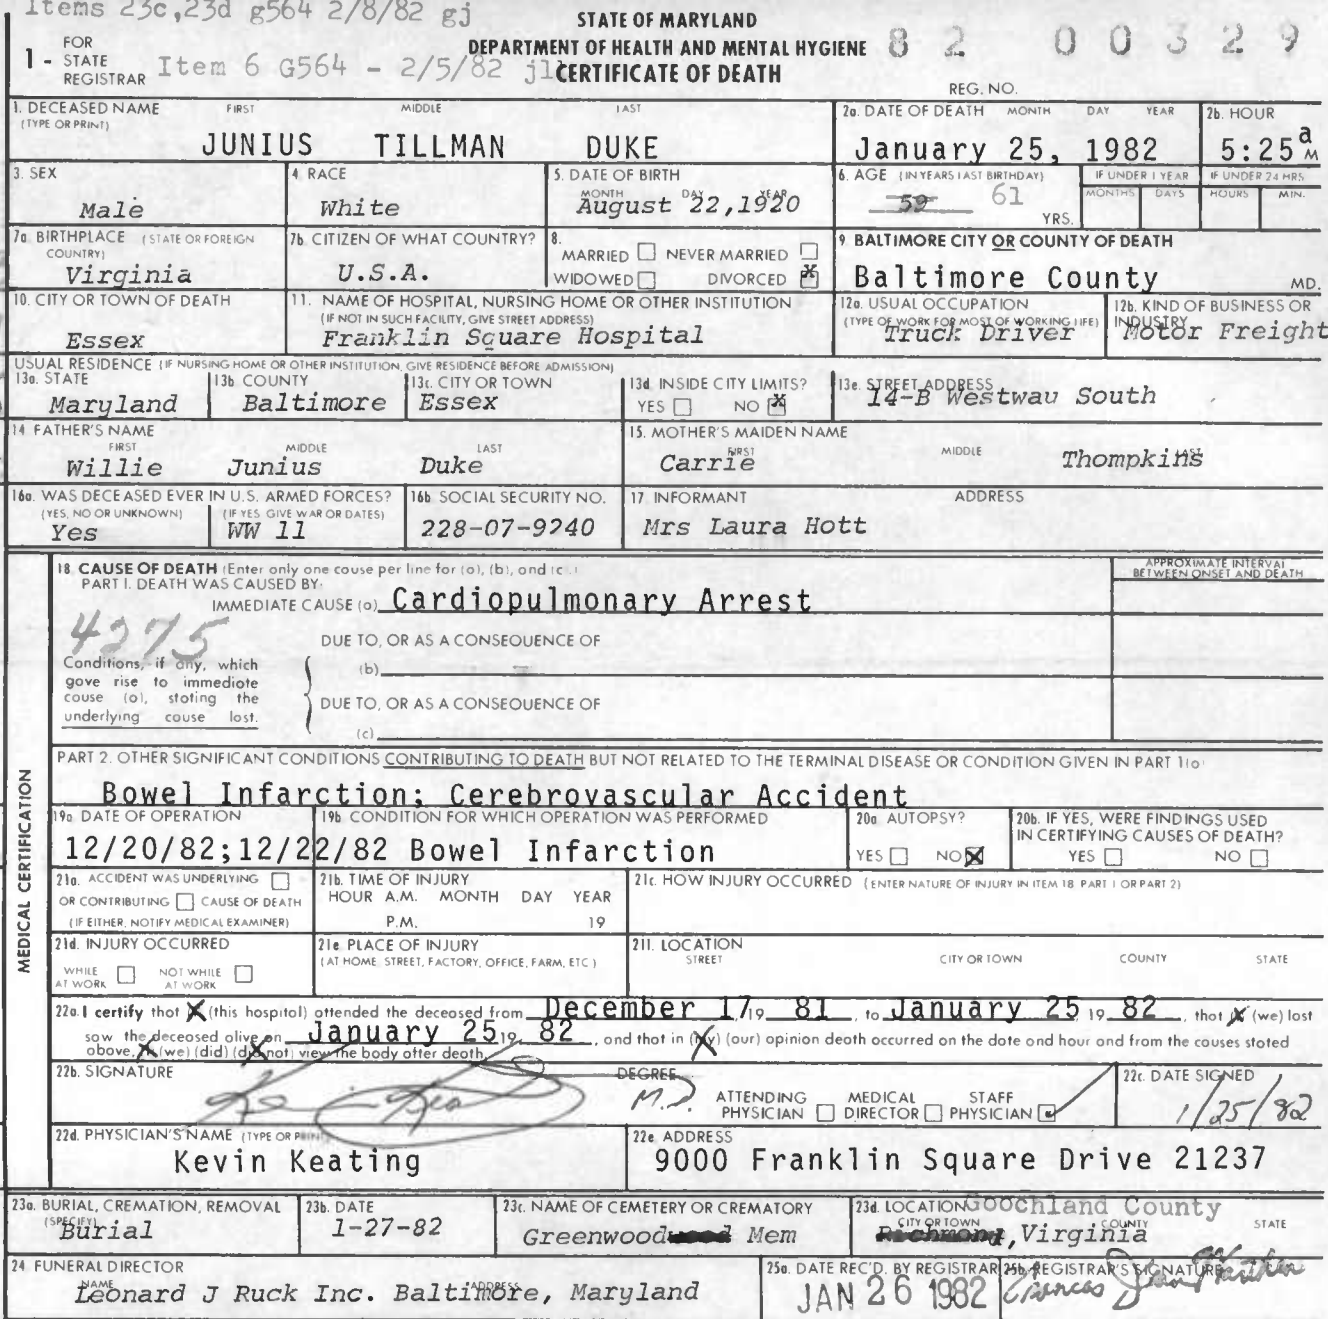 Items 23c,23d g564 2/8/82 gj
STATE OF MARYLAND
DEPARTMENT OF HEALTH AND MENTAL HYGIENE
CERTIFICATE OF DEATH
82 00329
1 - FOR STATE REGISTRAR Item 6 G564 - 2/5/82 jl
REG. NO.
1. DECEASED NAME FIRST MIDDLE LAST
(TYPE OR PRINT)
JUNIUS TILLMAN DUKE
2a. DATE OF DEATH MONTH DAY YEAR
January 25, 1982
2b. HOUR
5:25 a M
3. SEX
Male
4. RACE
White
5. DATE OF BIRTH
MONTH DAY YEAR
August 22,1920
6. AGE (IN YEARS LAST BIRTHDAY)
59 61
YRS.
IF UNDER 1 YEAR
MONTHS DAYS
IF UNDER 24 HRS
HOURS MIN.
7a. BIRTHPLACE (STATE OR FOREIGN COUNTRY)
Virginia
7b. CITIZEN OF WHAT COUNTRY?
U.S.A.
8.
MARRIED NEVER MARRIED
WIDOWED DIVORCED X
9 BALTIMORE CITY OR COUNTY OF DEATH
Baltimore County MD.
10. CITY OR TOWN OF DEATH
Essex
11. NAME OF HOSPITAL, NURSING HOME OR OTHER INSTITUTION
(IF NOT IN SUCH FACILITY, GIVE STREET ADDRESS)
Franklin Square Hospital
12a. USUAL OCCUPATION
(TYPE OF WORK FOR MOST OF WORKING LIFE)
Truck Driver
12b. KIND OF BUSINESS OR INDUSTRY
Motor Freight
USUAL RESIDENCE (IF NURSING HOME OR OTHER INSTITUTION, GIVE RESIDENCE BEFORE ADMISSION)
13a. STATE
Maryland
13b. COUNTY
Baltimore
13c. CITY OR TOWN
Essex
13d. INSIDE CITY LIMITS?
YES NO X
13e. STREET ADDRESS
14-B Westwau South
14 FATHER'S NAME
FIRST MIDDLE LAST
Willie Junius Duke
15. MOTHER'S MAIDEN NAME
FIRST MIDDLE LAST
Carrie Thompkins
16a. WAS DECEASED EVER IN U.S. ARMED FORCES?
(YES, NO OR UNKNOWN) (IF YES GIVE WAR OR DATES)
Yes WW 11
16b. SOCIAL SECURITY NO.
228-07-9240
17. INFORMANT ADDRESS
Mrs Laura Hott
MEDICAL CERTIFICATION
18. CAUSE OF DEATH (Enter only one cause per line for (a), (b), and (c).)
APPROXIMATE INTERVAL BETWEEN ONSET AND DEATH
PART I. DEATH WAS CAUSED BY:
IMMEDIATE CAUSE (a) Cardiopulmonary Arrest
4275
DUE TO, OR AS A CONSEQUENCE OF
(b)
Conditions, if any, which gave rise to immediate cause (a), stating the underlying cause last.
DUE TO, OR AS A CONSEQUENCE OF
(c)
PART 2. OTHER SIGNIFICANT CONDITIONS CONTRIBUTING TO DEATH BUT NOT RELATED TO THE TERMINAL DISEASE OR CONDITION GIVEN IN PART 1(a)
Bowel Infarction; Cerebrovascular Accident
19a DATE OF OPERATION
12/20/82;12/22/82
19b CONDITION FOR WHICH OPERATION WAS PERFORMED
Bowel Infarction
20a AUTOPSY?
YES NO X
20b. IF YES, WERE FINDINGS USED IN CERTIFYING CAUSES OF DEATH?
YES NO
21a. ACCIDENT WAS UNDERLYING
OR CONTRIBUTING CAUSE OF DEATH
(IF EITHER, NOTIFY MEDICAL EXAMINER)
21b. TIME OF INJURY
HOUR A.M. MONTH DAY YEAR
P.M. 19
21c. HOW INJURY OCCURRED (ENTER NATURE OF INJURY IN ITEM 18 PART 1 OR PART 2)
21d. INJURY OCCURRED
WHILE AT WORK NOT WHILE AT WORK
21e PLACE OF INJURY
(AT HOME, STREET, FACTORY, OFFICE, FARM, ETC.)
21f. LOCATION
STREET CITY OR TOWN COUNTY STATE
22a. I certify that X (this hospital) attended the deceased from December 17, 19 81, to January 25 19 82, that X (we) last
saw the deceased alive on January 25 19 82, and that in (my) (our) opinion death occurred on the date and hour and from the causes stated
above, X (we) (did) (did not) view the body after death.
22b. SIGNATURE
Kevin Keating
DEGREE
M.D.
ATTENDING PHYSICIAN MEDICAL DIRECTOR STAFF PHYSICIAN
22c. DATE SIGNED
1/25/82
22d. PHYSICIAN'S NAME (TYPE OR PRINT)
Kevin Keating
22e ADDRESS
9000 Franklin Square Drive 21237
23a. BURIAL, CREMATION, REMOVAL
(SPECIFY)
Burial
23b. DATE
1-27-82
23c. NAME OF CEMETERY OR CREMATORY
Greenwood Mem
23d. LOCATION Goochland County
CITY OR TOWN COUNTY STATE
Richmond, Virginia
24 FUNERAL DIRECTOR
NAME ADDRESS
Leonard J Ruck Inc. Baltimore, Maryland
25a. DATE REC'D. BY REGISTRAR
JAN 26 1982
25b. REGISTRAR'S SIGNATURE